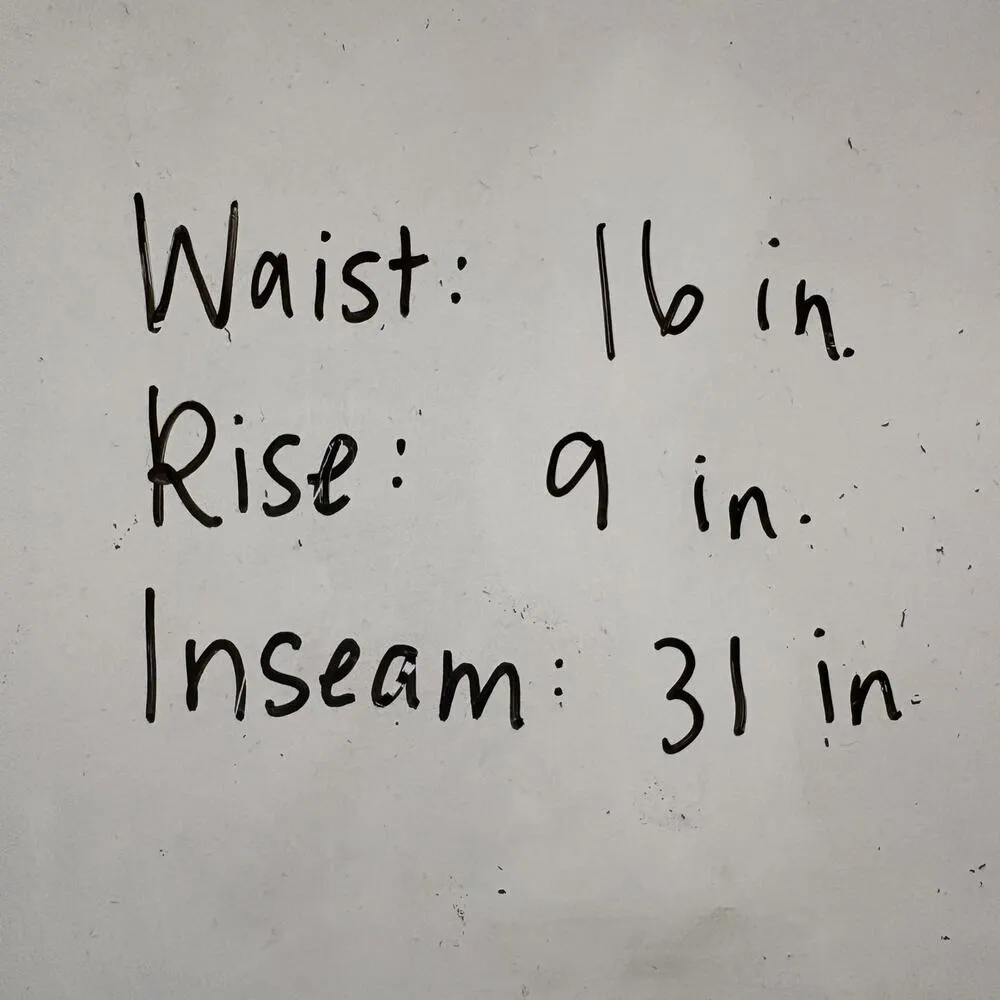 Waist: 16 in.
Rise: 9 in.
Inseam: 31 in.